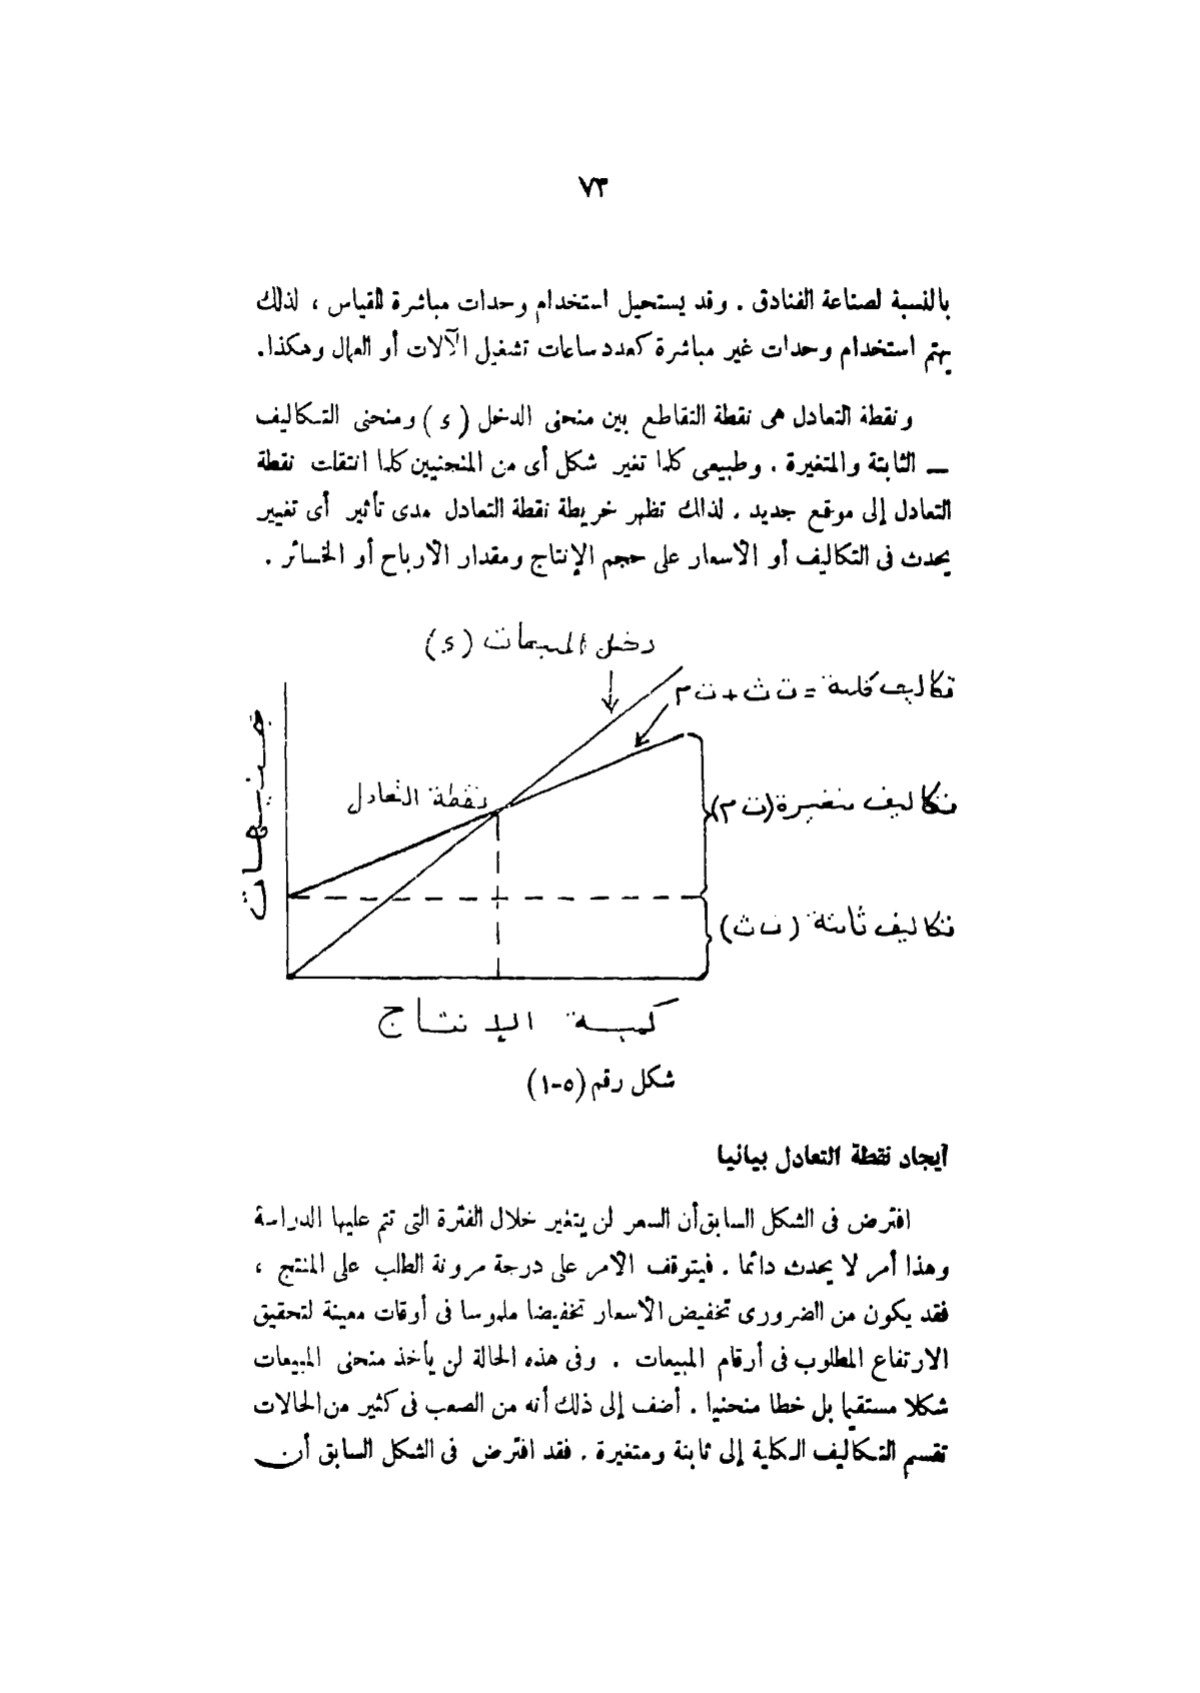 ٧٣
بالنسبة لصناعة الفنادق . وقد يستحيل استخدام وحدات مباشرة للقياس ، لذلك
يهتم استخدام وحدات غير مباشرة كعدد ساعات تشغيل الآلات أو العمال وهكذا.
ونقطة التعادل هى نقطة التقاطع بين منحنى الدخل ( ى ) ومنحنى التكاليف
— الثابتة والمتغيرة . وطبيعى كلما تغير شكل أى من المنحنيين كلما انتقلت نقطة
التعادل إلى موقع جديد . لذلك تظهر خريطة نقطة التعادل مدى تأثير أى تغيير
يحدث فى التكاليف أو الاسعار على حجم الإنتاج ومقدار الارباح أو الخسائر .
دخل المبيعات (ى)
تكاليف كلية = ت ث + ت م
نقطة التعادل
تكاليف متغيرة (ت م)
جنيهات
تكاليف ثابتة ( ت ث )
كمية الإنتاج
شكل رقم (٥-١)
ايجاد نقطة التعادل بيانيا
افترض فى الشكل السابق أن السعر لن يتغير خلال الفترة التى تتم عليها الدراسة
وهذا أمر لا يحدث دائما . فيتوقف الامر على درجة مرونة الطلب على المنتج ،
فقد يكون من الضرورى تخفيض الاسعار تخفيضا ملموسا فى أوقات معينة لتحقيق
الارتفاع المطلوب فى أرقام المبيعات . وفى هذه الحالة لن يأخذ منحنى المبيعات
شكلا مستقيما بل خطا منحنيا . أضف إلى ذلك أنه من الصعب فى كثير من الحالات
تقسم التكاليف الكلية إلى ثابتة ومتغيرة . فقد افترض فى الشكل السابق أن